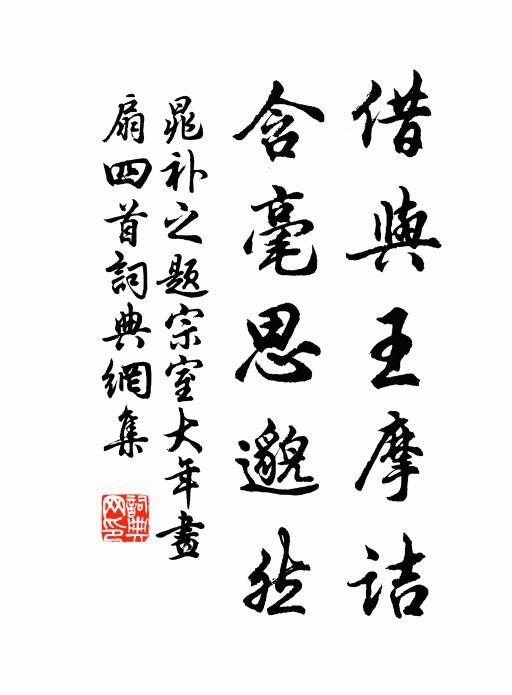 借與王摩詰
含毫思邈然
晁补之题宗室大年畫
扇四首詞典網集
詞典
网印